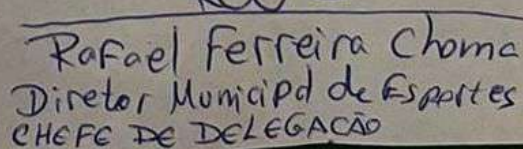 Rafael Ferreira Choma
Diretor Municipal de Esportes
CHEFE DE DELEGACÃO